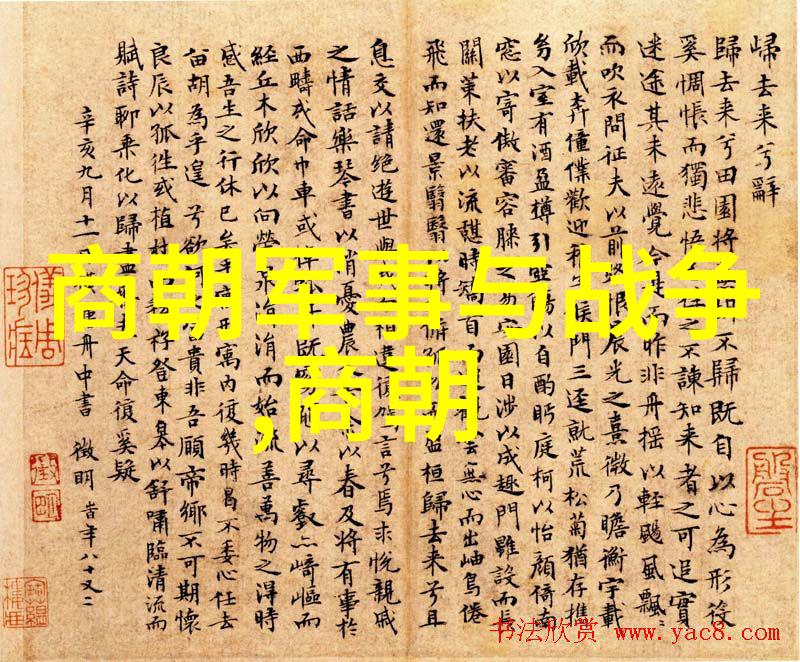 歸去来兮辭
歸去来兮田園將不歸既自以心為形役
奚惆悵而獨悲悟往之不諫知来者之可追實
迷途其未遠覺今是而昨非舟摇以輕颺風飄〻
而吹衣問征夫以前路恨晨光之熹微乃瞻衡宇載
欣載奔僮僕歡迎稚子候門三逕就荒松菊猶存攜
幼入室有酒盈樽引壺觴以自酌眄庭柯以怡顔倚南
窓以寄傲審容膝之易安園日涉以成趣門雖設而長
關策扶老以流憩時矯首而無心而出岫鳥倦
飛而知還景翳翳以將桓歸去来兮且
息交以請絶遊世與我而相違復駕言兮焉求悦親戚
之情話樂琴書以消憂農人以春及將有事於
西疇或命巾車或棹既以尋壑亦崎嶇而
經丘木欣欣以向榮泉涓涓而始流善萬物之得時
感吾生之行休已矣乎寓形宇内復幾時曷不委心任去
留胡為乎遑兮欲何之富貴非吾願帝鄉不可期懷
良辰以孤往或植杖而耘耔登東皋以舒嘯臨清流而
賦詩聊乘化以歸盡天命復奚疑
辛亥九月十一舟中書 徵明 旹年八十又二
商朝军事与战争
,商朝
书法欣赏 www.yac8.com